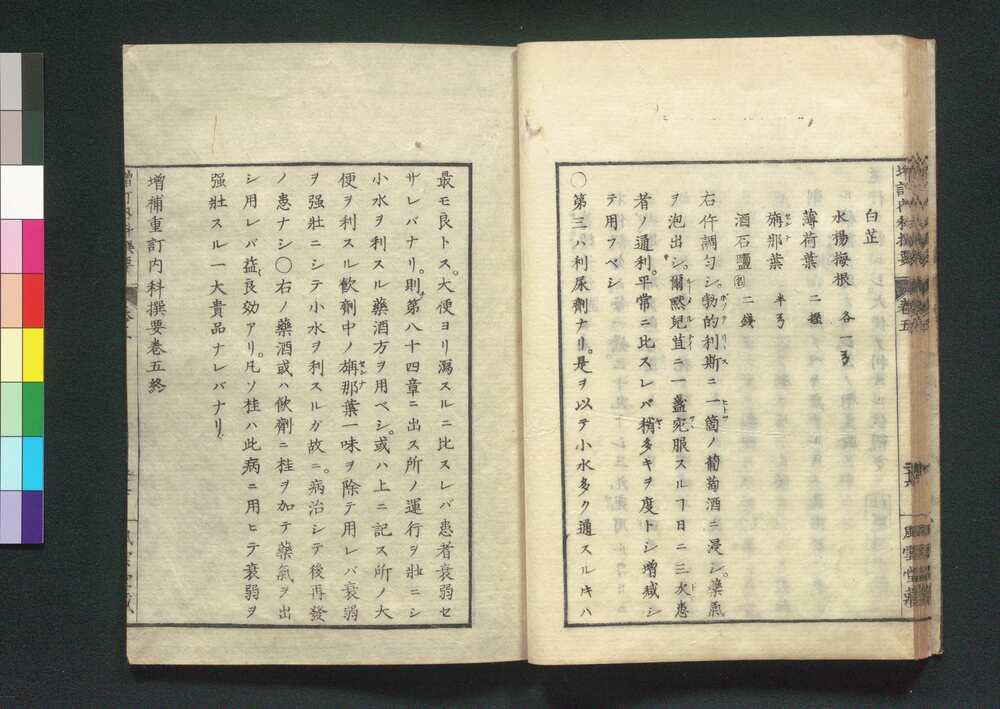 増訂内科撰要 卷五
風雲堂藏
白芷
水楊梅根 各一弓
薄荷葉 二握
旃那葉 半弓
酒石鹽 二錢
右件調勻シ。勃的利斯ニ一箇ノ葡萄酒ニ浸シ。藥氣
ヲ泡出シ。爾煕兒苴ニ一盞宛服スルヿ日ニ三次患
者ノ通利。平常ニ比スレバ稍多キヲ度トシ増減シ
テ用フベシ
○第三ハ利尿劑ナリ。是ヲ以テ小水多ク通スルキハ
最モ良トス。大便ヨリ瀉スルニ比スレバ患者衰弱セ
サレバナリ。則第八十四章ニ出ス所ノ運行ヲ壯ニシ
小水ヲ利スル藥酒方ヲ用ベシ。或ハ上ニ記ス所ノ大
便ヲ利スル飲劑中ノ旃那葉一味ヲ除テ用レバ衰弱
ヲ強壯ニシテ小水ヲ利スルガ故ニ。病治シテ後再發
ノ患ナシ○右ノ藥酒或ハ飲劑ニ桂ヲ加テ藥氣ヲ出
シ用レバ益良効アリ。凡ソ桂ハ此病ニ用ヒテ衰弱ヲ
強壯スル一大貴品ナレバナリ
増補重訂内科撰要卷五終